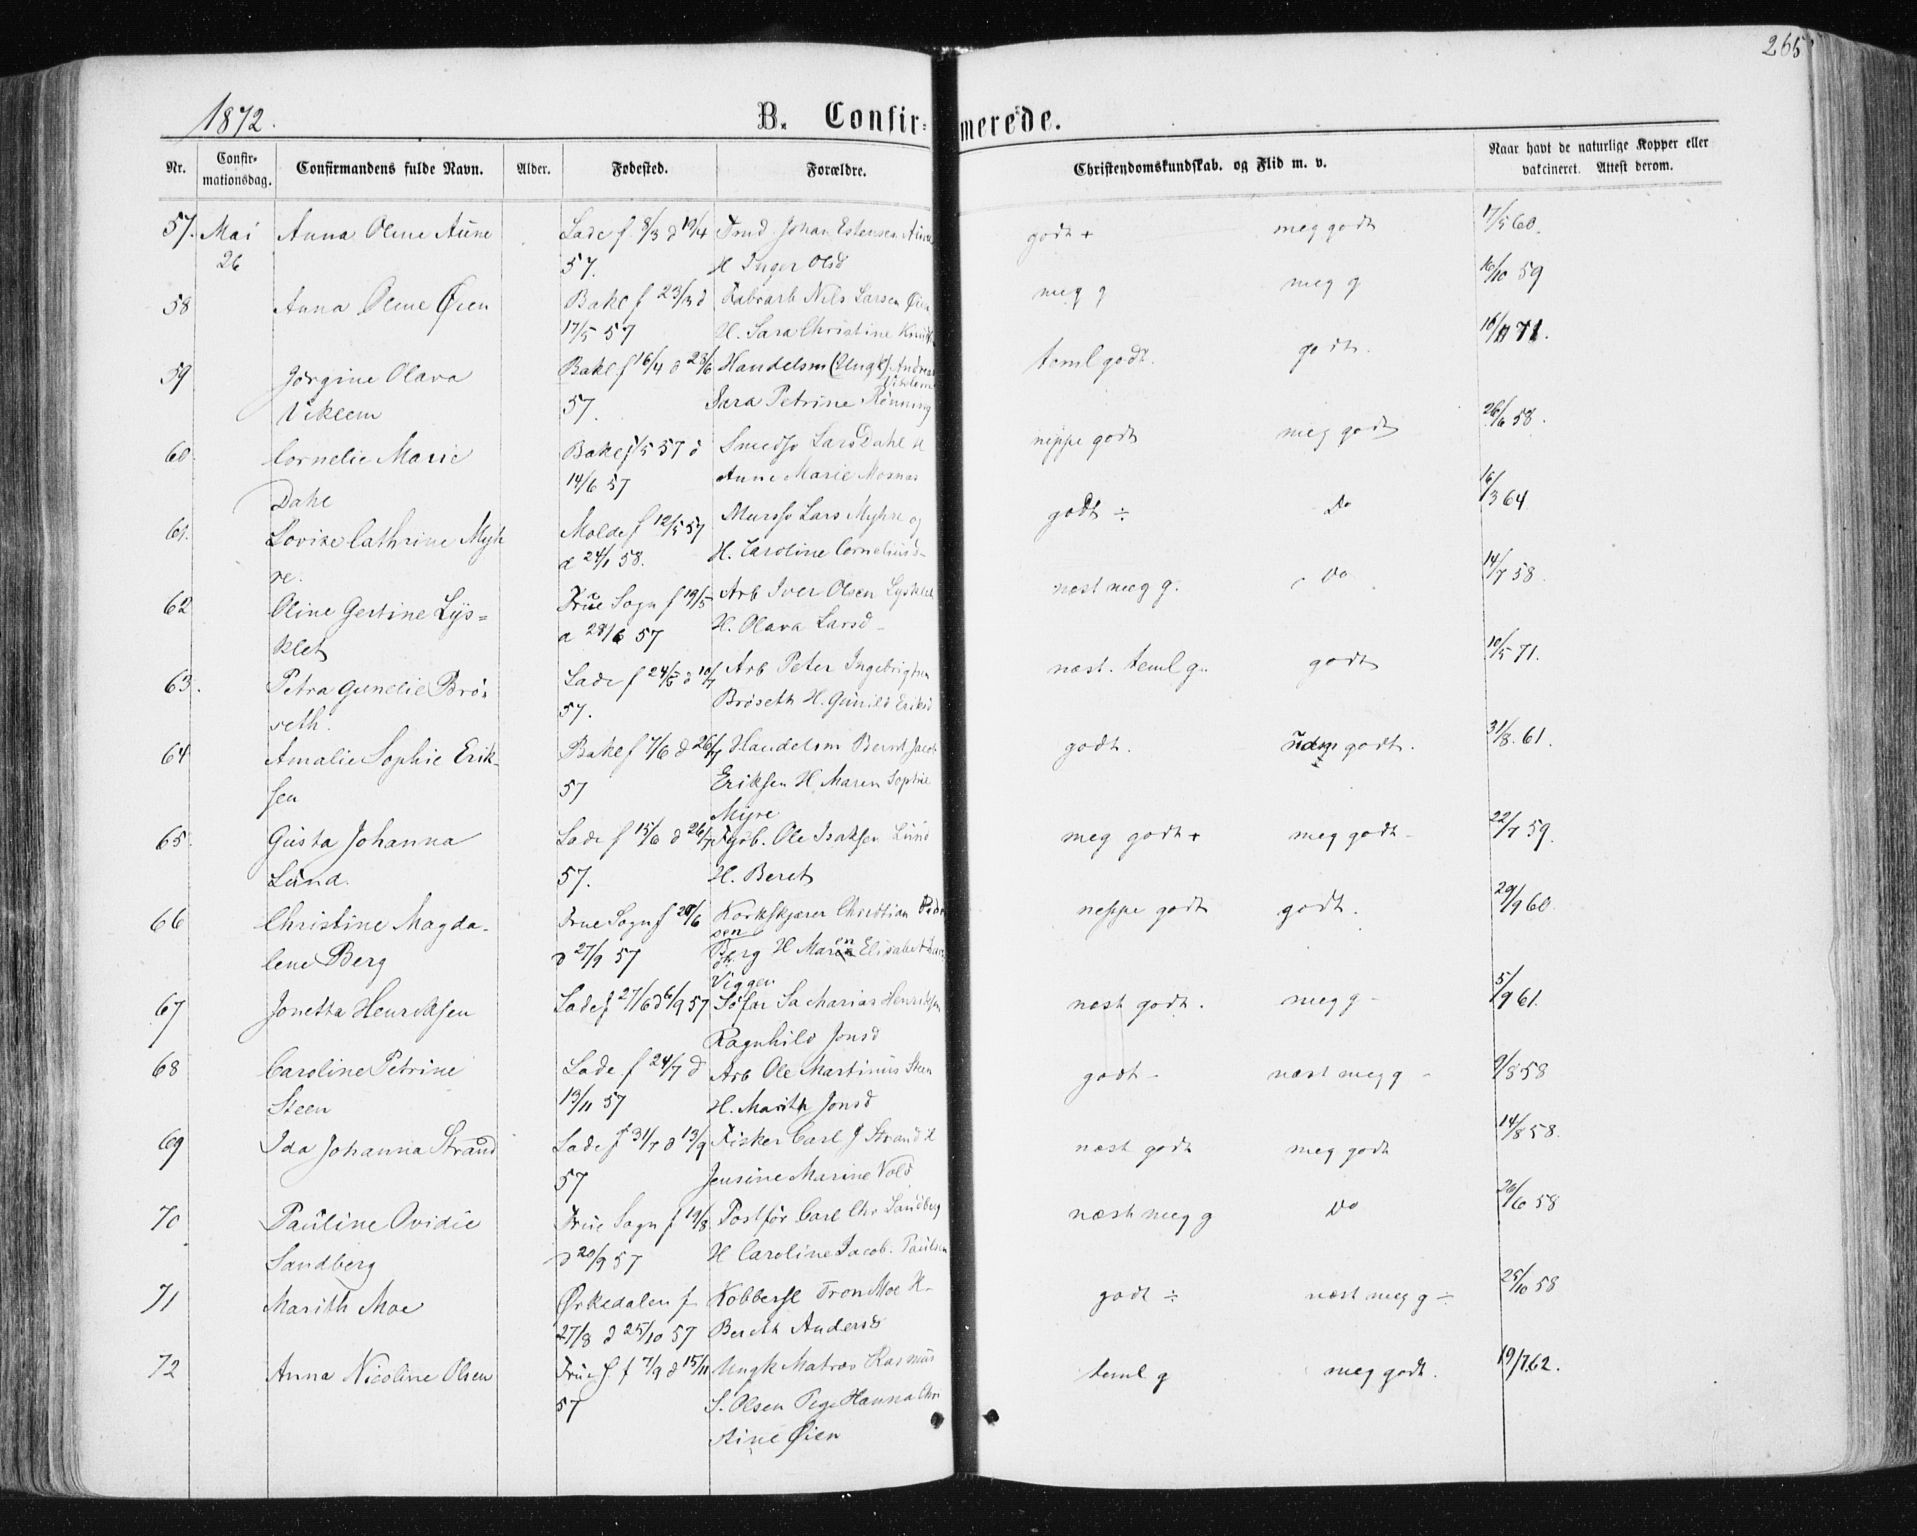 265
1872.
B. Confir=merede.
Nr.
Confir=mationsdag.
Confirmandens fulde Navn.
Alder.
Fødested.
Forældre.
Christendomskundskab. og Flid m. v.
Naar havt de naturlige Kopper eller vakcineret. Attest derom.
57. Mai Anna Oline Aune Lade f 8/3 d 19/4 Johan Estensen Aune godt + meg godt 17/5 60.
26 57. H Inger Olsd
58 Anna Oline Øien Bakl f 23/3 d Fabrarb Nils Larsen Øien meg g meg g 16/10 59
17/5 57 H. Sara Christine
59 Jørgine Olava Bakl f 16/4 d 28/6 Handelsm (Ungk) Andreas Viklem teml godt. godt. 71.
Viklem 57. Sara Petrine Rønning
60 Cornelie Marie Bakl 57 d Smedsv Lars Dahl H neppe godt meg godt 26/6 58.
Dahl 14/6 57 Anne Marie Mosnas
61. Lovise Cathrine Myh Molde f 12/5 57 Mursv Lars Myhre og godt ÷ Do 16/3 64
re. d 24/1 58. H. Caroline Corneliusd-
62 Oline Gertine Lys= Frue Sogn f 19/5 Arb Iver Olsen Lysklet næst meg g. Do 14/7 58.
klet d 28/6 57 H. Olava Larsd-
63. Petra Gunelie Brø= Lade f 24/5 d 10/7 Arb Peter Ingebrigtsen næst. teml g. godt 10/5 71.
seth. 57. Brøseth H. Gunild Eriksd
64 Amalie Sophie Erik- Bakl f 7/6 d 26/7 Handelsm Bernt Jacob godt. udm godt. 31/8. 61.
sen 57 Eriksen H Maren Sophie
Myre
65. Gusta Johanna Lade f 15/6 d 26/7 Fyrb. Ole Isaksen Lund meg godt + meg godt - 22/7 59.
Lund. 57. H. Beret
66 Christine Magda- Frue Sogn f 20/6 Korkskjærer Christian Peder neppe godt godt. 29/9 60.
sen
lene Berg d 27/9 57 Berg H Maren Elisabet
Viggen
67 Jonetta Henriksen Lade f 27/6 d 6/9 57 Søfar Sacharias Henriksen næst godt. meg g - 5/9 61.
Ragnhild Jonsd
68 Caroline Petrine Lade f 24/7 d Arb Ole Martinus Steen godt - næst meg g - 9/8 58
Steen 13/11 57 H. Marith Jonsd
69 Ida Johanna Strand Lade f 31/7 d 13/9 Fisker Carl J Strand H næst godt meg godt 14/8 58.
57 Jensine Marine Vold
70 Pauline Ovidie Frue Sogn f 19/8 Postfør Carl Chr Sandberg næst meg g Do 26/6 58
Sandberg d 20/9 57 H Caroline Jacob. Paulsen
71 Marith Moe Ørkedalen f Kobbersl Tron Moe H- godt ÷ næst meg g ÷ 25/10 58
27/8 d 25/10 57 Bereth Andersd
72 Anna Nicoline Olsen Frue S. f 7/9 d 15/11 Ungk Matros Rasmus teml g meg godt. 19/7 62.
57 S. Olsen Pige Hanna Chri
stine Øien